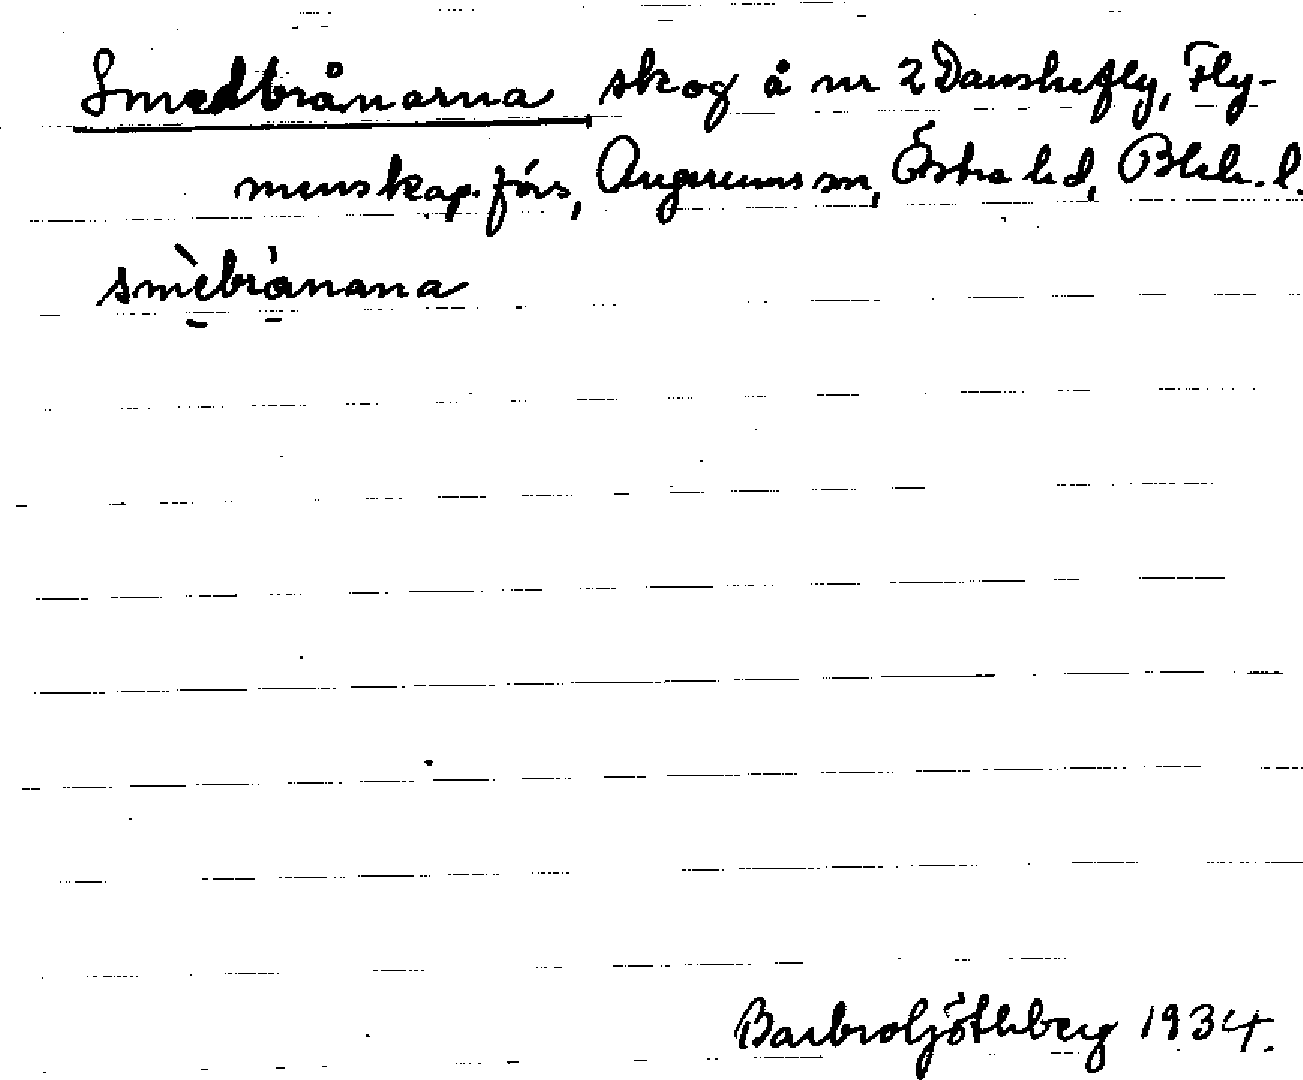 Smedbrånarna skog å nr 2 Danskefly, Fly-
menskap. förs, Augerums sn, Östra hd, Blek. l.
smèbrånana
Barbro Göthberg 1934.